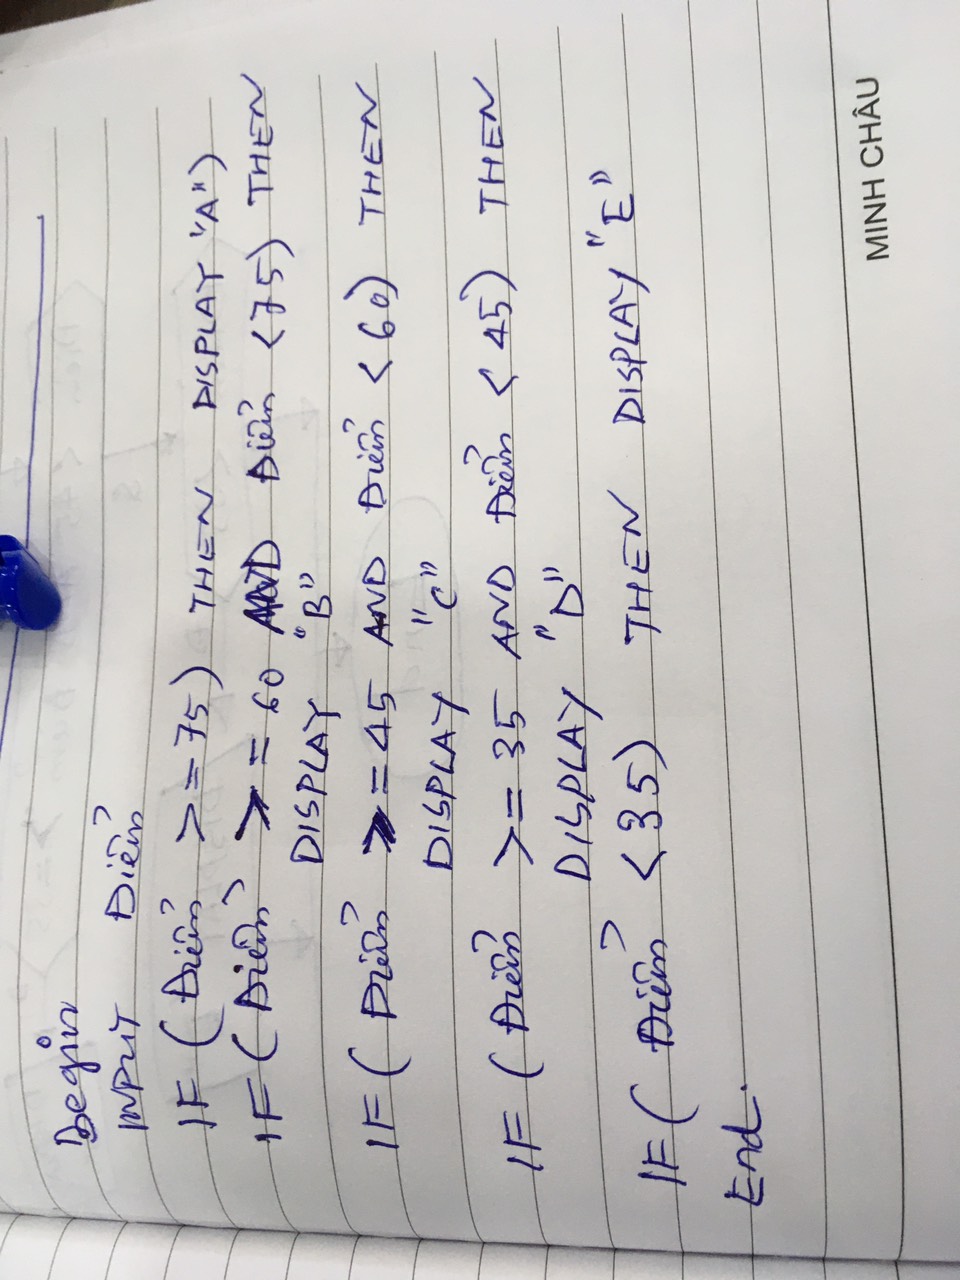 Begin
INPUT Điểm
IF (Điểm >= 75) THEN DISPLAY "A")
IF (Điểm >= 60 AND Điểm < 75) THEN
DISPLAY "B"
IF (Điểm >= 45 AND Điểm < 60) THEN
DISPLAY "C"
IF (Điểm >= 35 AND Điểm < 45) THEN
DISPLAY "D"
IF (Điểm < 35) THEN DISPLAY "E"
End.
MINH CHÂU